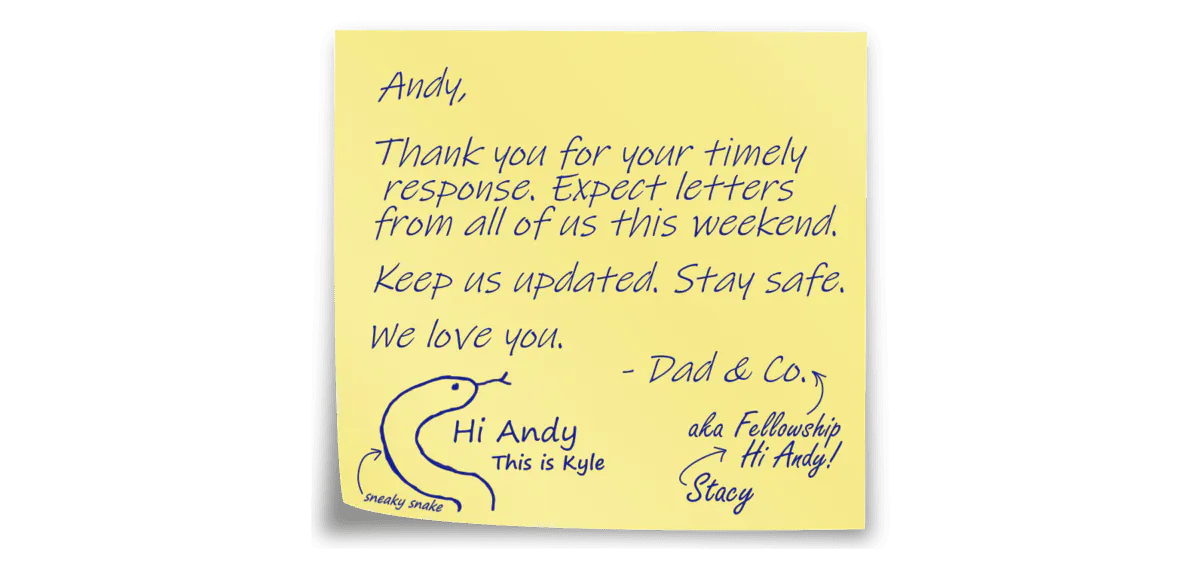 Andy,
Thank you for your timely
response. Expect letters
from all of us this weekend.
Keep us updated. Stay safe.
We love you.
- Dad & Co.
aka Fellowship
Hi Andy!
Stacy
Hi Andy
This is Kyle
sneaky snake